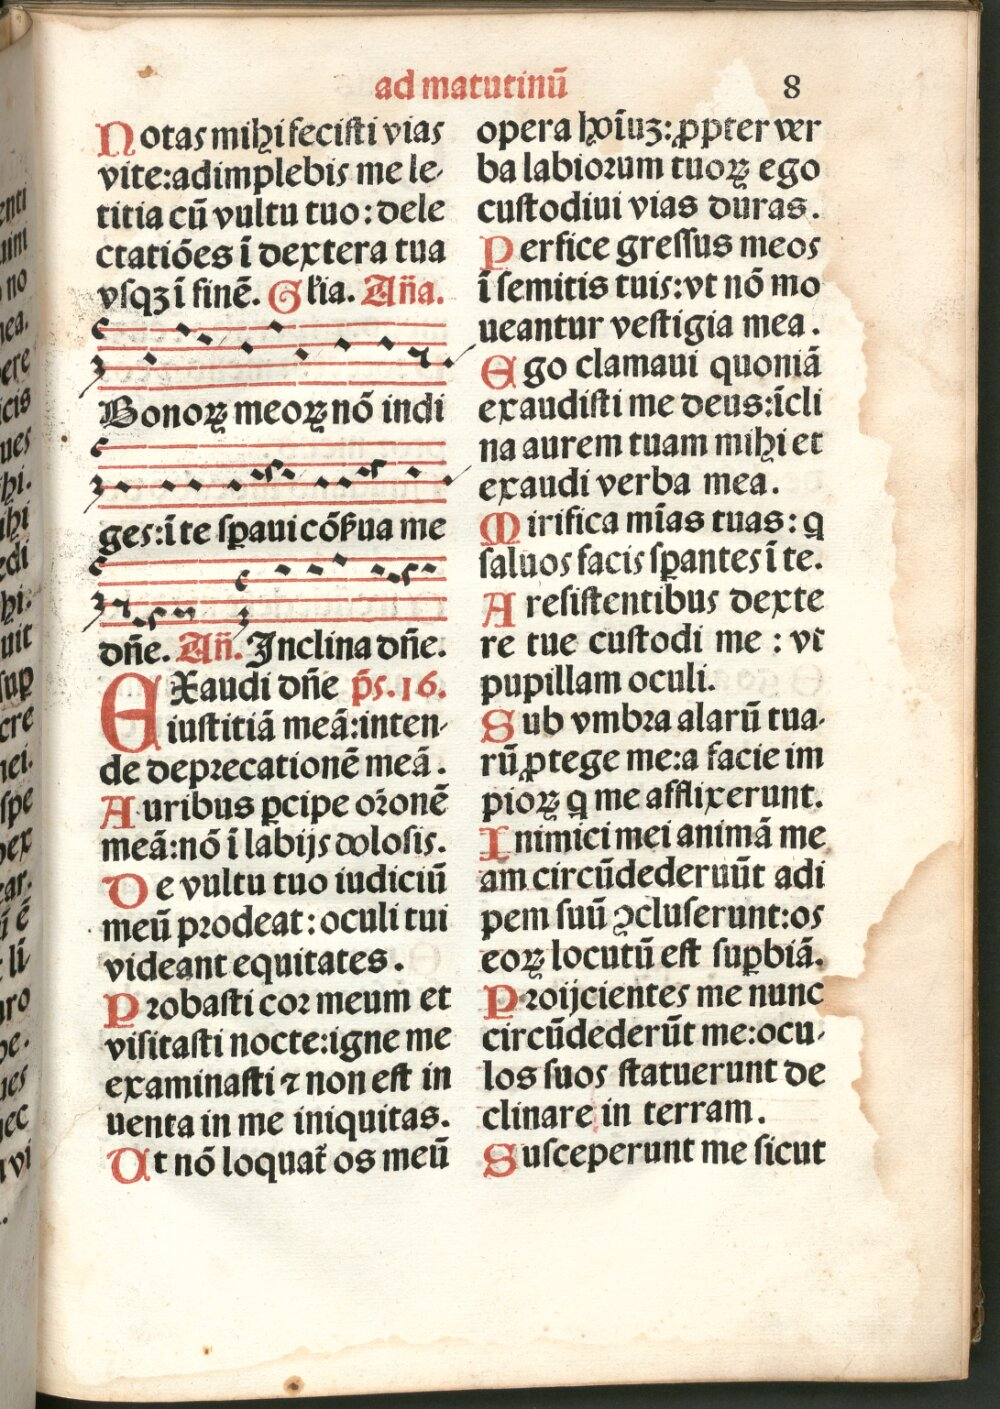 ad matutinū
8
Notas mihi fecisti vias
vite:adimplebis me le-
titia cū vultu tuo:dele
ctatiōes ī dextera tua
vsqꝫ ī finē. Gl'ia. An̄a.
Bonoꝝ meoꝝ nō indi
ges:ī te ſꝑaui cōẜua me
dn̄e. An̄. Inclina dn̄e.
EXaudi dn̄e p̄s.16.
iustitiā meā:inten-
de deprecationē meā.
Auribus ꝑcipe or̄onē
meā:nō ī labijs dolosis.
De vultu tuo iudiciū
meū prodeat: oculi tui
videant equitates.
Probasti cor meum et
visitasti nocte:igne me
examinasti ⁊ non est in
uenta in me iniquitas.
Ut nō loquat᷑ os meū
opera hoīuꝫ: ꝓpter ver
ba labiorum tuoꝝ ego
custodiui vias duras.
Perfice gressus meos
ī semitis tuis:vt nō mo
ueantur vestigia mea.
Ego clamaui quoniā
exaudisti me deus:īcli
na aurem tuam mihi et
exaudi verba mea.
Mirifica mīas tuas: ꝗ
saluos facis ſꝑantes ī te.
A resistentibus dexte
re tue custodi me : vt
pupillam oculi.
Sub vmbra alarū tua-
rū ꝓtege me:a facie im
pioꝝ ꝗ me afflixerunt.
Inimici mei animā me
am circūdederuūt adi
pem suū ꝯcluserunt:os
eoꝝ locutū est suꝑbiā.
Proijcientes me nunc
circūdederūt me:ocu-
los suos statuerunt de
clinare in terram.
Susceperunt me sicut